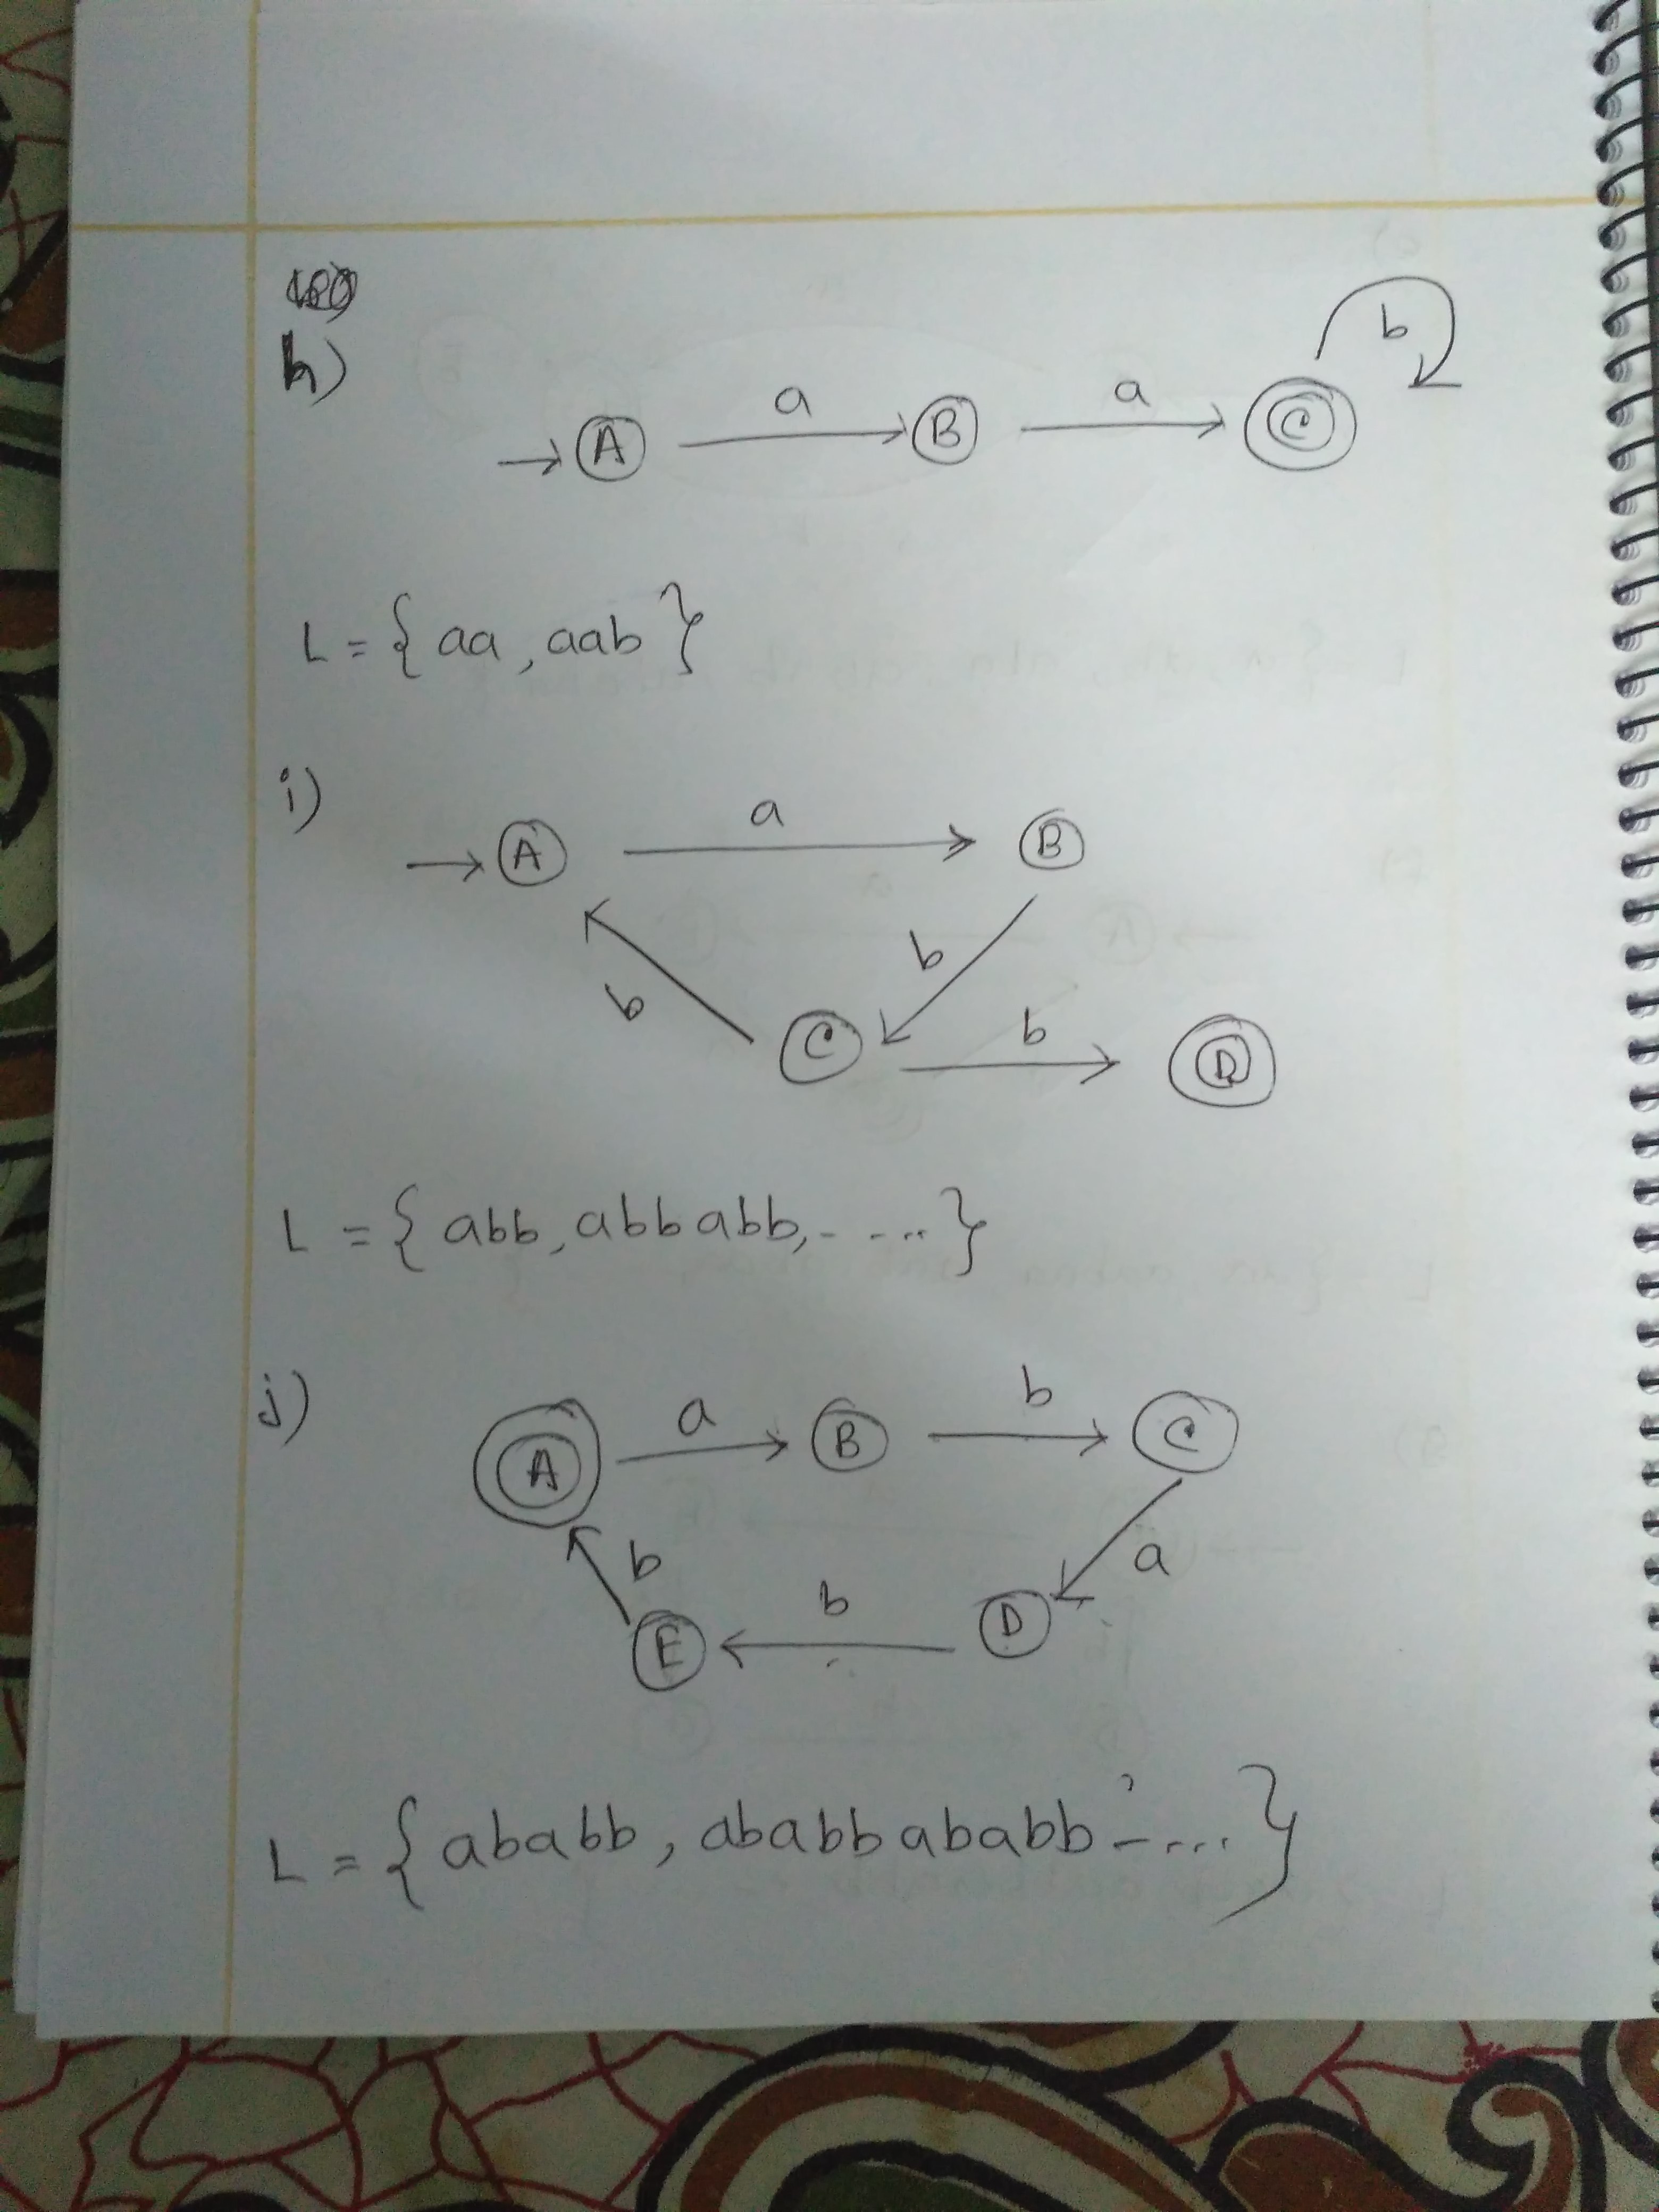 h)
b
A a B a C
L = { aa, aab }
i)
A a B
b b
C b D
L = { abb, abbabb, ..... }
j)
A a B b C
b a
E b D
L = { ababb, ababbababb, ..... }